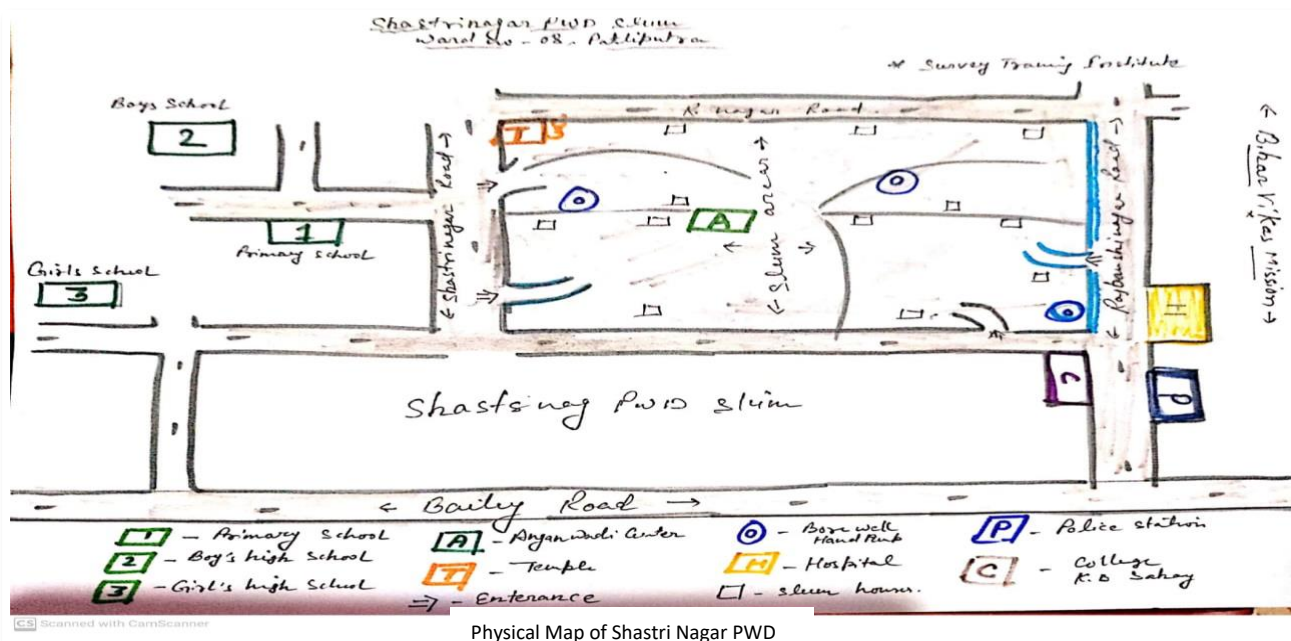 Shastrinagar PWD Slum
Ward No - 08 - Patliputra
* Survey Traning Institute
Boys School
2
K. nagar Road
T
← Shastrinagar Road →
1
Primary School
Girls School
3
A
← Slum area →
Rajbanshinagar Road →
← Bihar Vikas Mission →
H
C
P
Shastrinag PWD slum
← Baily Road →
1 - Primary School
2 - Boy's high School
3 - Girl's high School
A - Anganwadi Center
T - Temple
⇒ - Enterance
Bore well
Hand Pump
H - Hospital
□ - slum houses.
P - Police station
C - College
K.B Sahay
CS Scanned with CamScanner
Physical Map of Shastri Nagar PWD